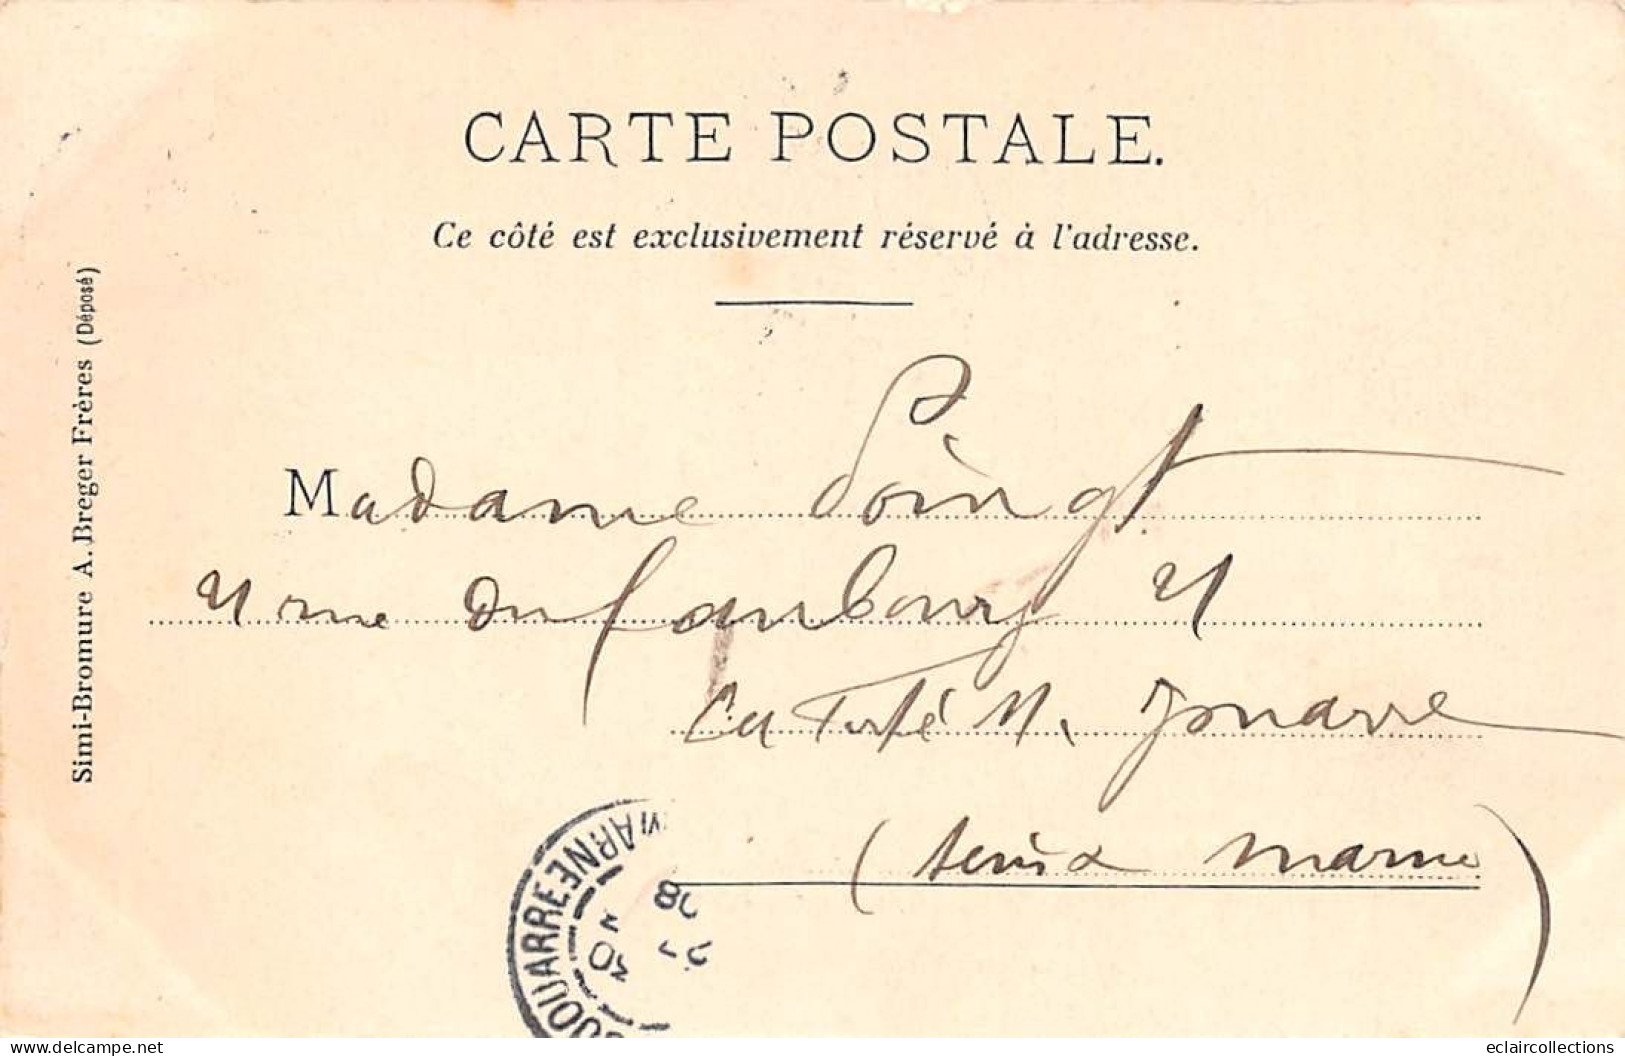 CARTE POSTALE.
Ce côté est exclusivement réservé à l'adresse.
Simi-Bromure A. Breger Frères (Déposé)
Madame Poingt
21 rue du faubourg 21
La Ferté s/ Jouarre
(Seine & Marne)
JOUARRE MARNE
30
08
delcampe.net
eclaircollections